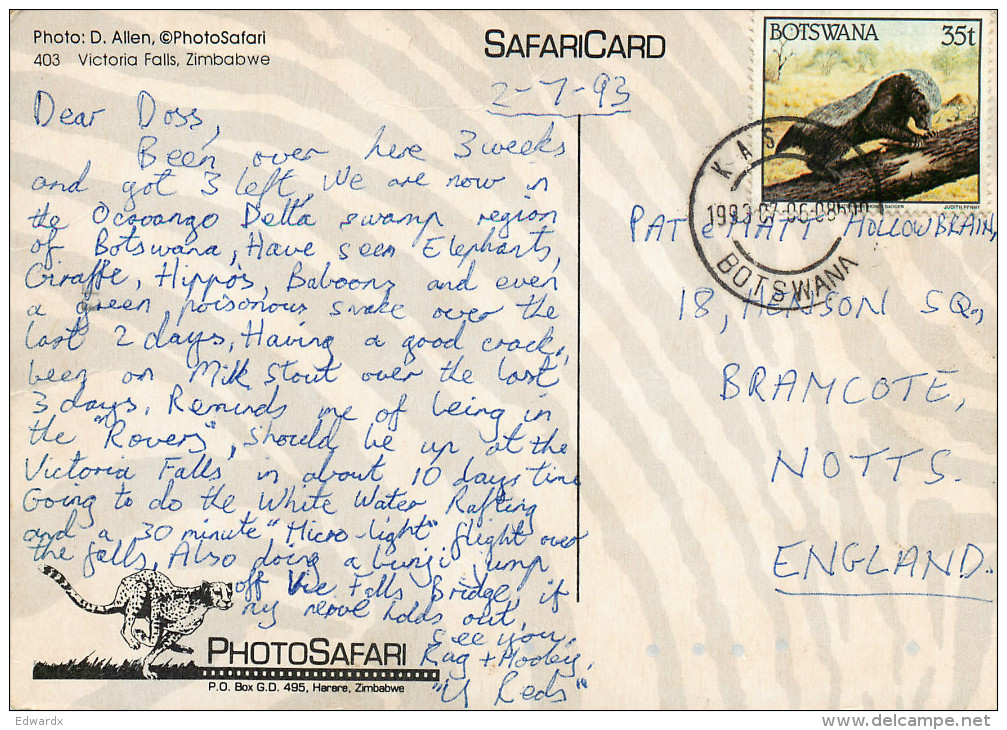 Photo: D. Allen, ©PhotoSafari
403 Victoria Falls, Zimbabwe
SAFARICARD
BOTSWANA 35t
JUDITH PENNY
2-7-93
KAS
1993-07-06-08h00
BOTSWANA
Dear Doss,
Been over here 3 weeks
and got 3 left, We are now in
the Ocovango Delta swamp region
of Botswana, Have seen Elephants,
Giraffe, Hippos, Baboons and even
a green poisonous snake over the
last 2 days, Having a good crack,
been on Milk Stout over the last
3 days, Reminds me of being in
the "Rovers", Should be up at the
Victoria Falls in about 10 days time
Going to do the White Water Rafting
and a 30 minute "Micro-light" flight over
the falls, Also doing a bunji jump
off Vic Falls Bridge, if
my nerve holds out,
see you,
Rag + Hooley,
"U Reds"
PAT & MATT HOLLOWBRAIN,
18, HENSON SQ.,
BRAMCOTE,
NOTTS.
ENGLAND.
PHOTOSAFARI
P.O. Box G.D. 495, Harare, Zimbabwe
Edwardx
www.delcampe.net